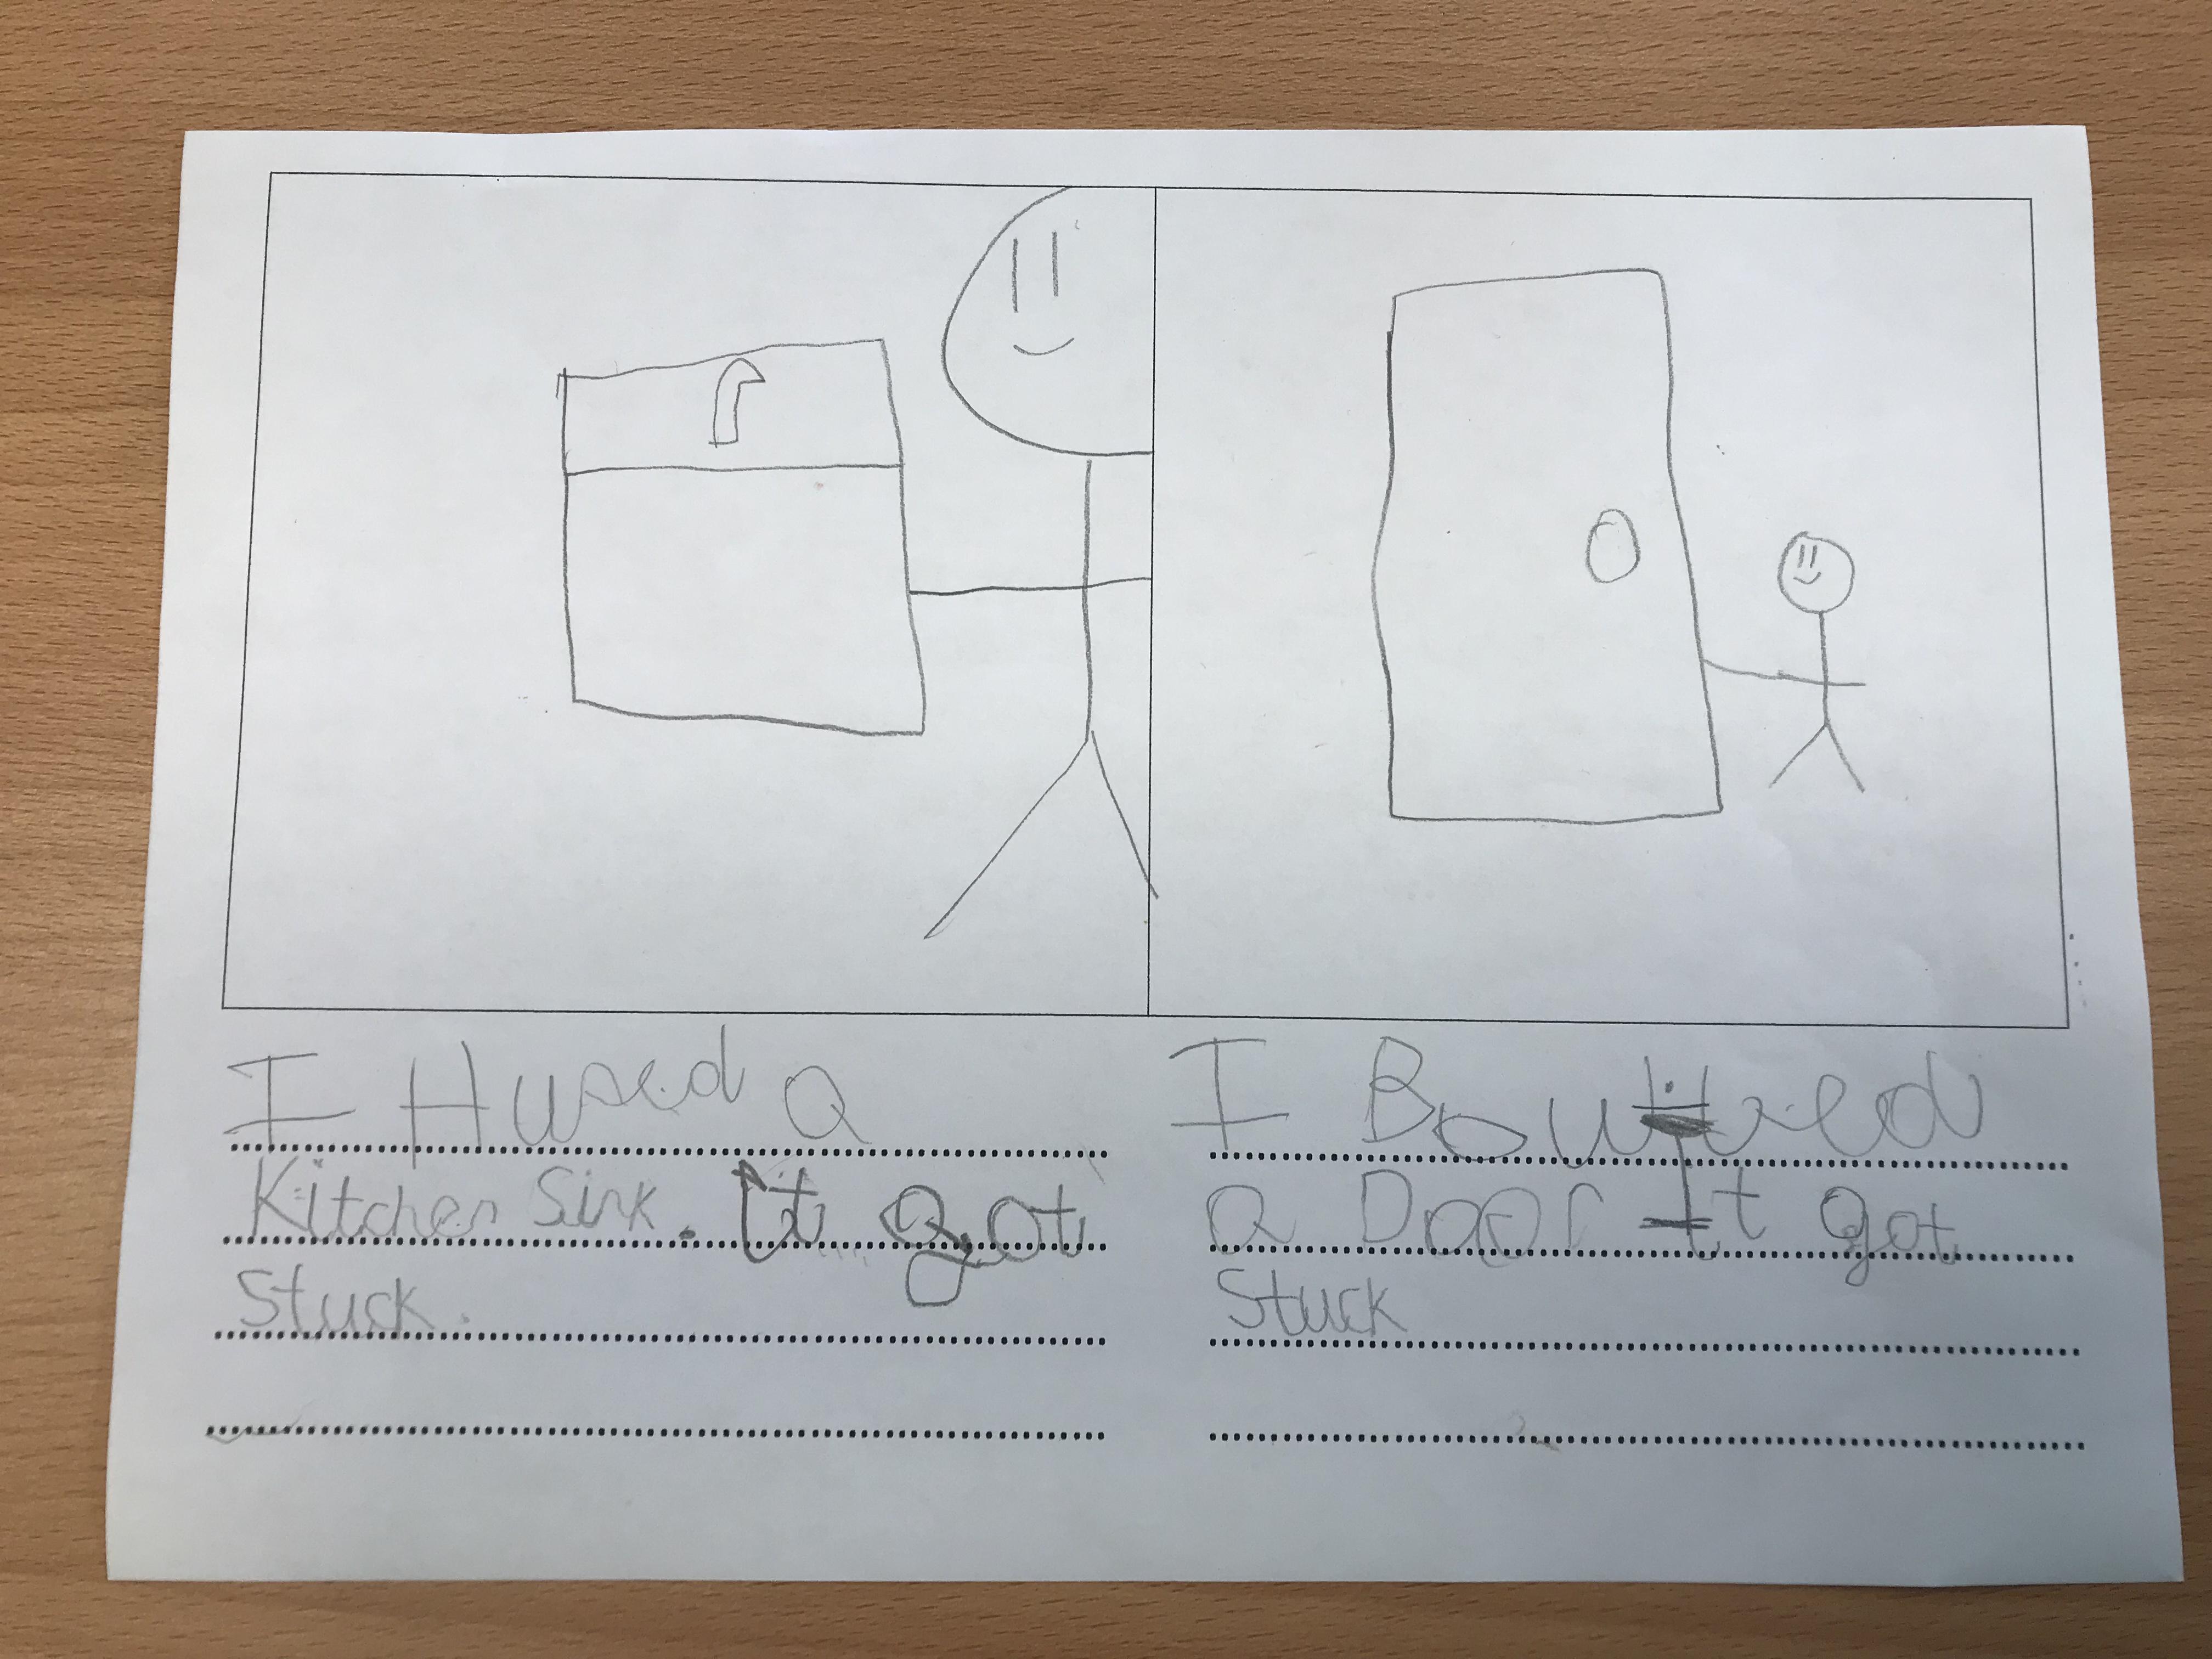 I Hused a
Kitchen Sink. It got
Stuck.
I
a Door It got
Stuck